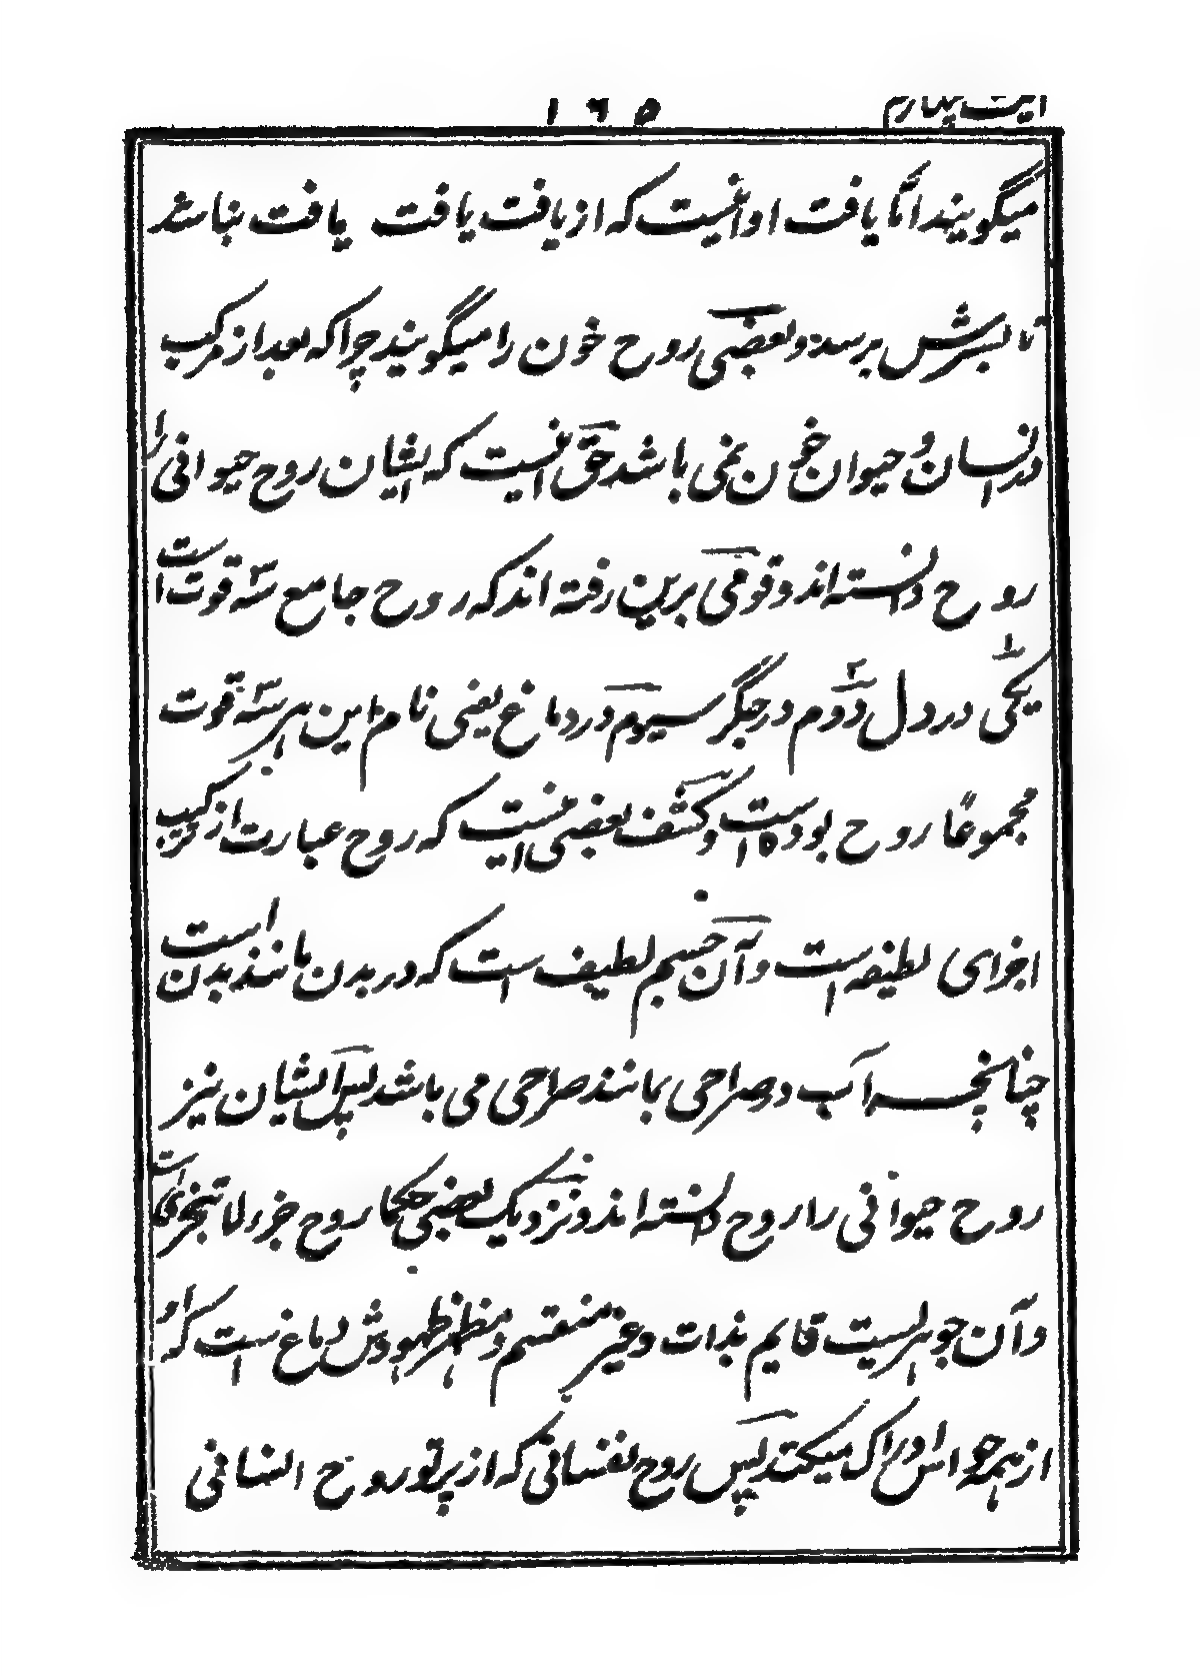 ۱۶۵
میگویند امّا یافت او اینست که از یافت یافت یافت نباشد
تا بسرش برسد و بعضی روح خون را میگویند چرا که بعد از مرکب
در انسان و حیوان خون نمی باشد حق اینست که ایشان روح حیوانی را
روح دانسته اند و قومی برین رفته اند که روح جامع سه قوت است
یکی در دل دوم در جگر سیوم در دماغ یعنی نام این هر سه قوت
مجموعًا روح بوده است و کشف بعضی اینست که روح عبارت از ترکیب
اجزای لطیفه است و آن جسم لطیف است که در بدن مانند بدن است
چنانچه آب در صراحی بمانند صراحی می باشد پس ایشان نیز
روح حیوانی را روح دانسته اند و نزدیک بعضی حکما روح جزء لا تیجزی است
و آن جوهریست قایم بذات و غیر منقسم و مظهر ظهورش دماغ است که او
از همه حواس ادراک میکند پس روح نفسانی که از پرتو روح انسانی